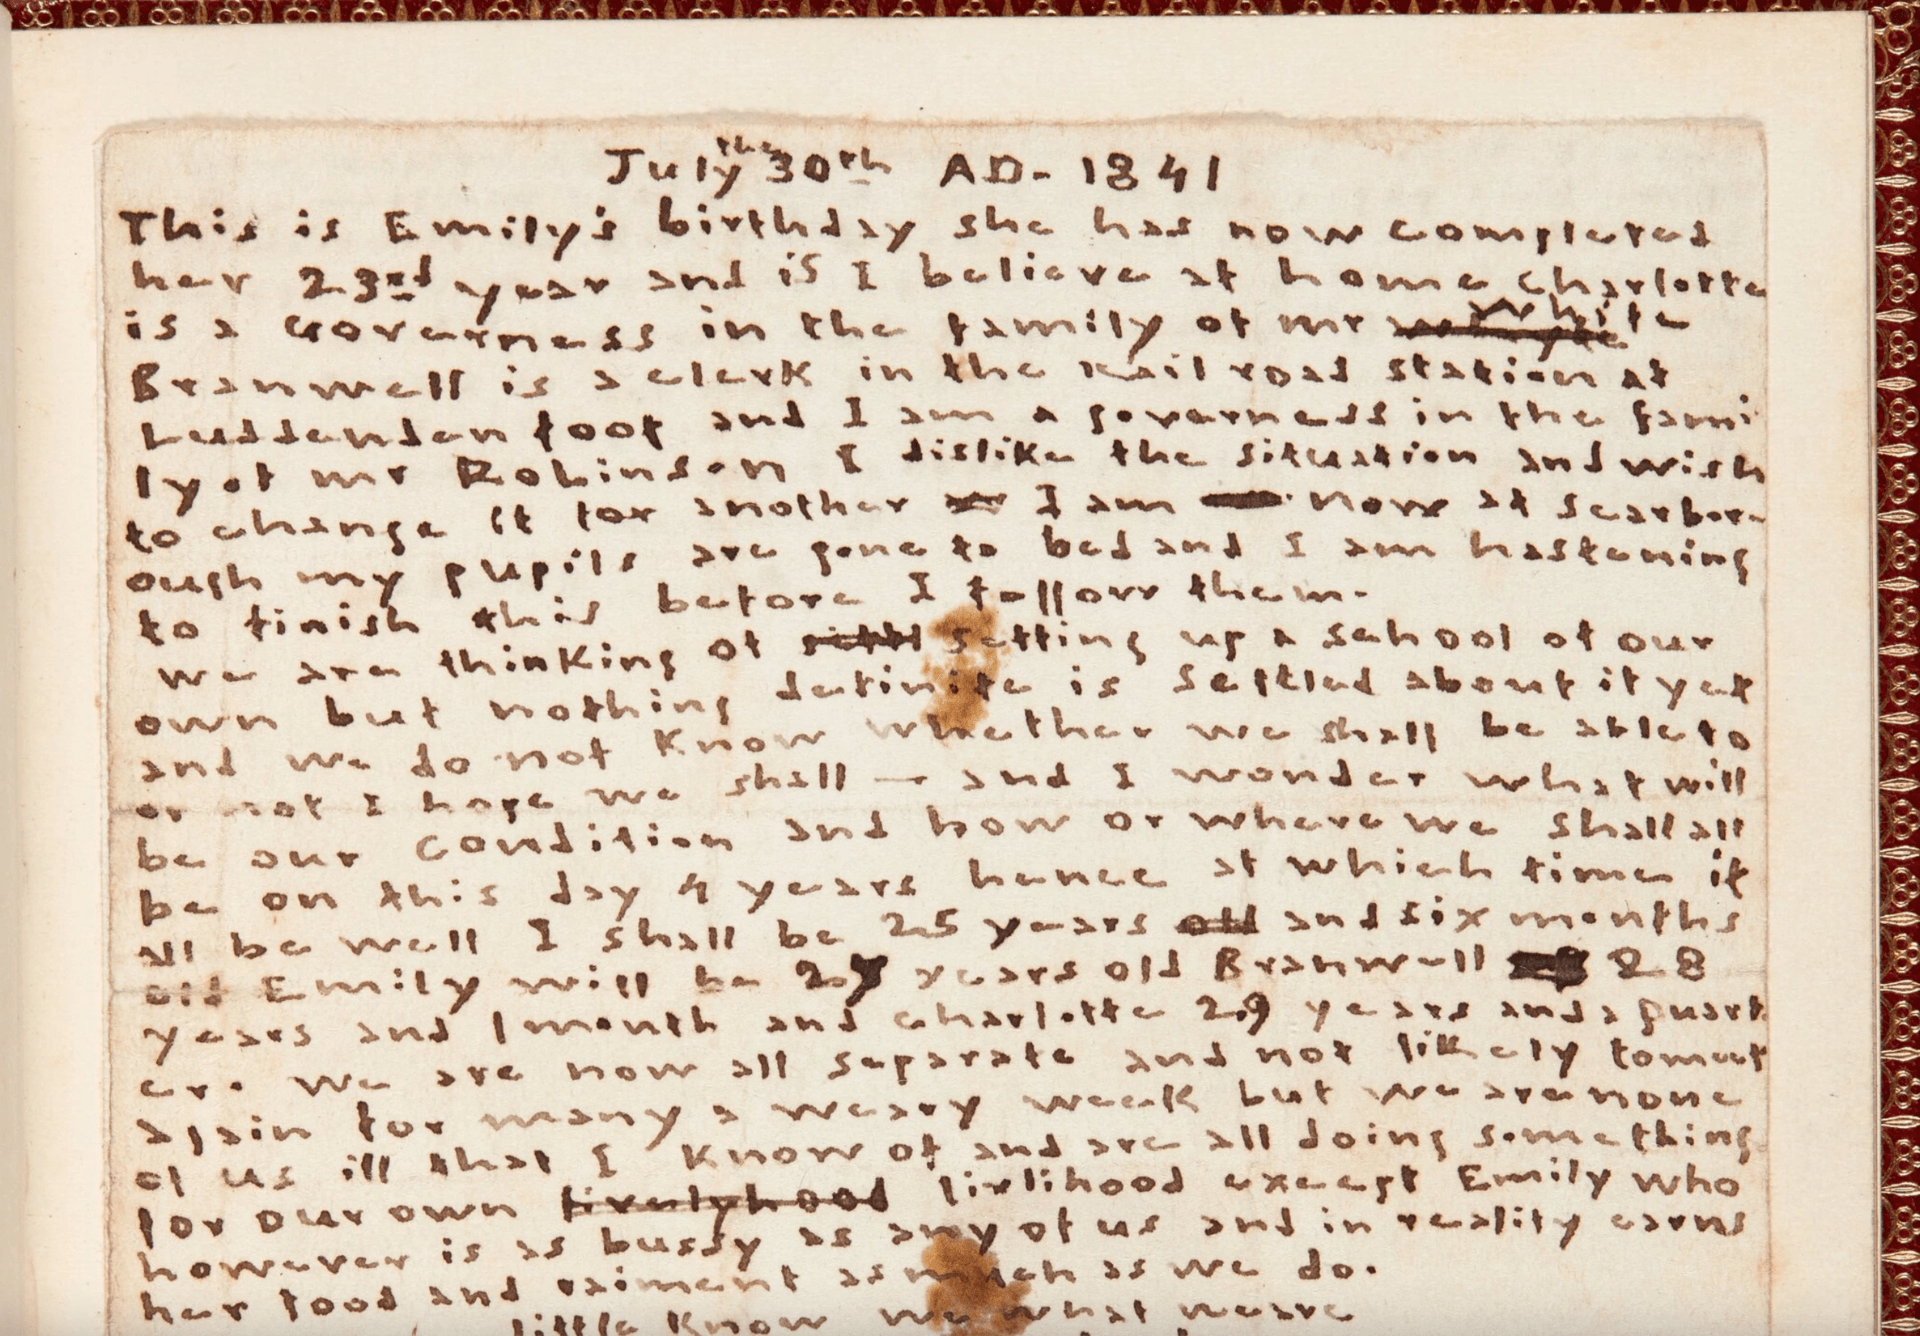 July the 30th AD- 1841
This is Emily's birthday she has now completed
her 23rd year and is I believe at home Charlotte
is a Governess in the family of mr White
Branwell is a clerk in the Rail road station at
Luddenden foot and I am a governess in the fami
ly of mr Robinson I dislike the situation and wish
to change it for another I am now at Scarbor-
ough my pupils are gone to bed and I am hastening
to finish this before I follow them.
we are thinking of setting up a school of our
own but nothing definite is settled about it yet
and we do not know whether we shall be able to
or not I hope we shall — and I wonder what will
be our condition and how or where we shall all
be on this day 4 years hence at which time if
all be well I shall be 25 years old and six months
old Emily will be 27 years old Branwell 28
years and 1 month and Charlotte 29 years and a quart
er. We are now all separate and not likely to meet
again for many a weary week but we are none
of us ill that I know of and are all doing something
for our own livelyhood livlihood except Emily who
however is as bussy as any of us and in reality earns
her food and raiment as much as we do.
little know we what we are